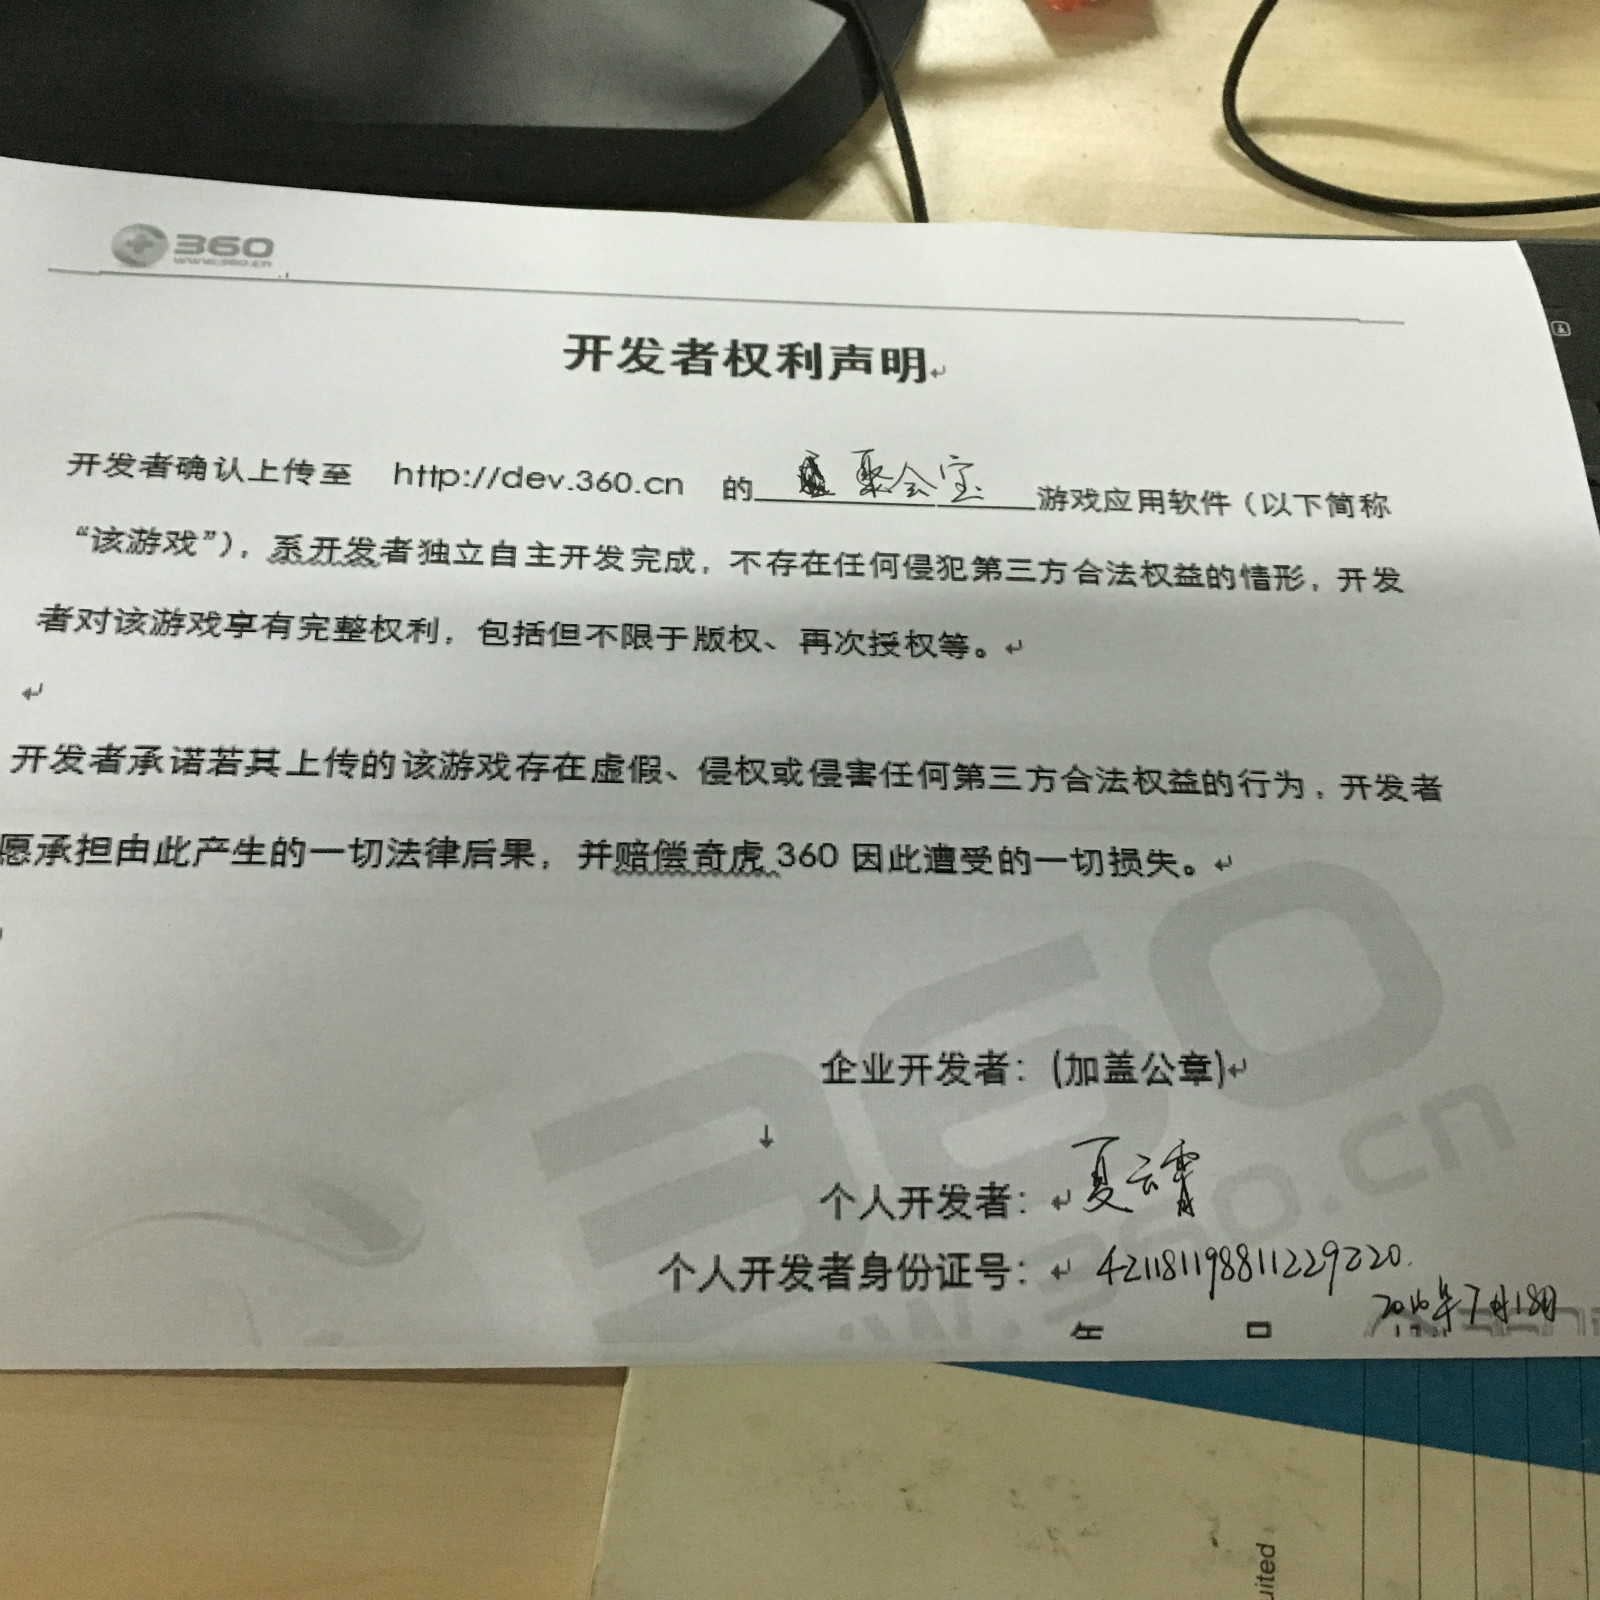 360
www.360.cn
开发者权利声明
开发者确认上传至 http://dev.360.cn 的 聚会宝 游戏应用软件（以下简称
“该游戏”），系开发者独立自主开发完成，不存在任何侵犯第三方合法权益的情形，开发
者对该游戏享有完整权利，包括但不限于版权、再次授权等。
开发者承诺若其上传的该游戏存在虚假、侵权或侵害任何第三方合法权益的行为，开发者
愿承担由此产生的一切法律后果，并赔偿奇虎 360 因此遭受的一切损失。
企业开发者：(加盖公章)
个人开发者：夏云霄
个人开发者身份证号：421181198811229220
2016年7月18日
360
www.360.cn
uited